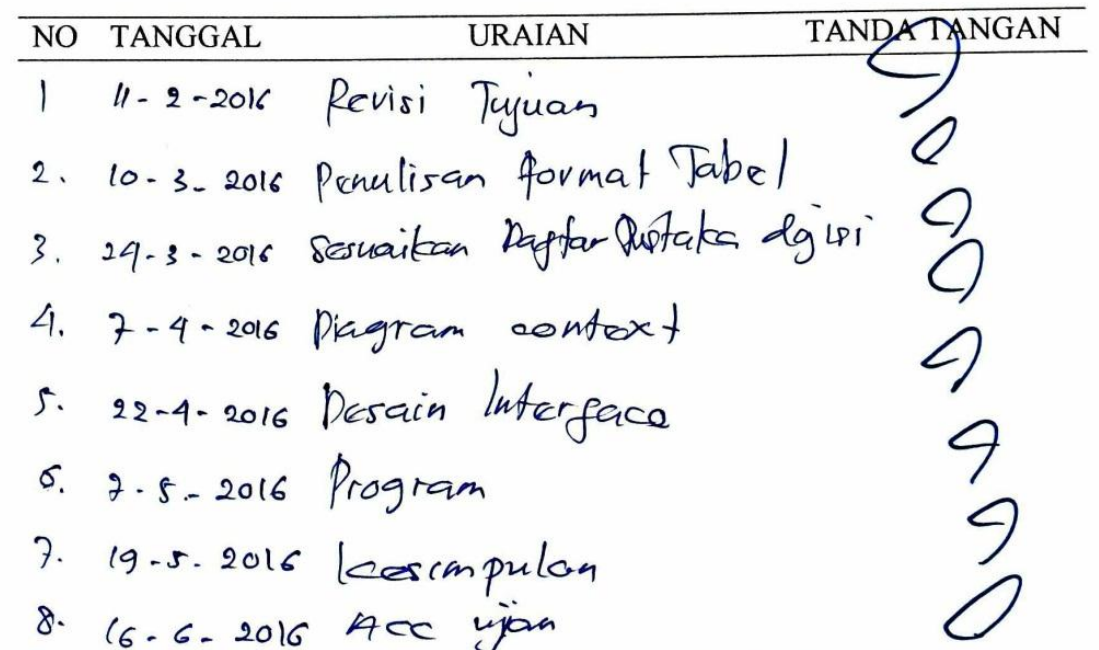 NO TANGGAL URAIAN TANDA TANGAN
1 11-2-2016 Revisi Tujuan
2. 10-3-2016 Penulisan format Tabel
3. 24-3-2016 Sesuaikan Daftar Pustaka dg isi
4. 7-4-2016 Diagram context
5. 22-4-2016 Desain Interface
6. 2-5-2016 Program
7. 19-5-2016 kesimpulan
8. 16-6-2016 ACC ujian